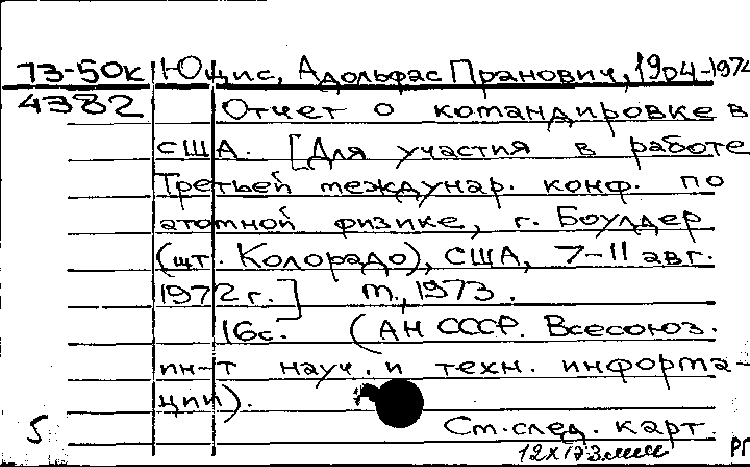 73-50к Юцис, Адольфас Пранович, 1904-1974
4382 Отчет о командировке в
США. [Для участия в работе
Третьей междунар. конф. по
атомной физике, г. Боулдер
(шт. Колорадо), США, 7-11 авг.
1972 г.] М., 1973.
16с. (АН СССР. Всесоюз.
ин-т науч. и техн. информа-
ции).
5 См. след. карт.